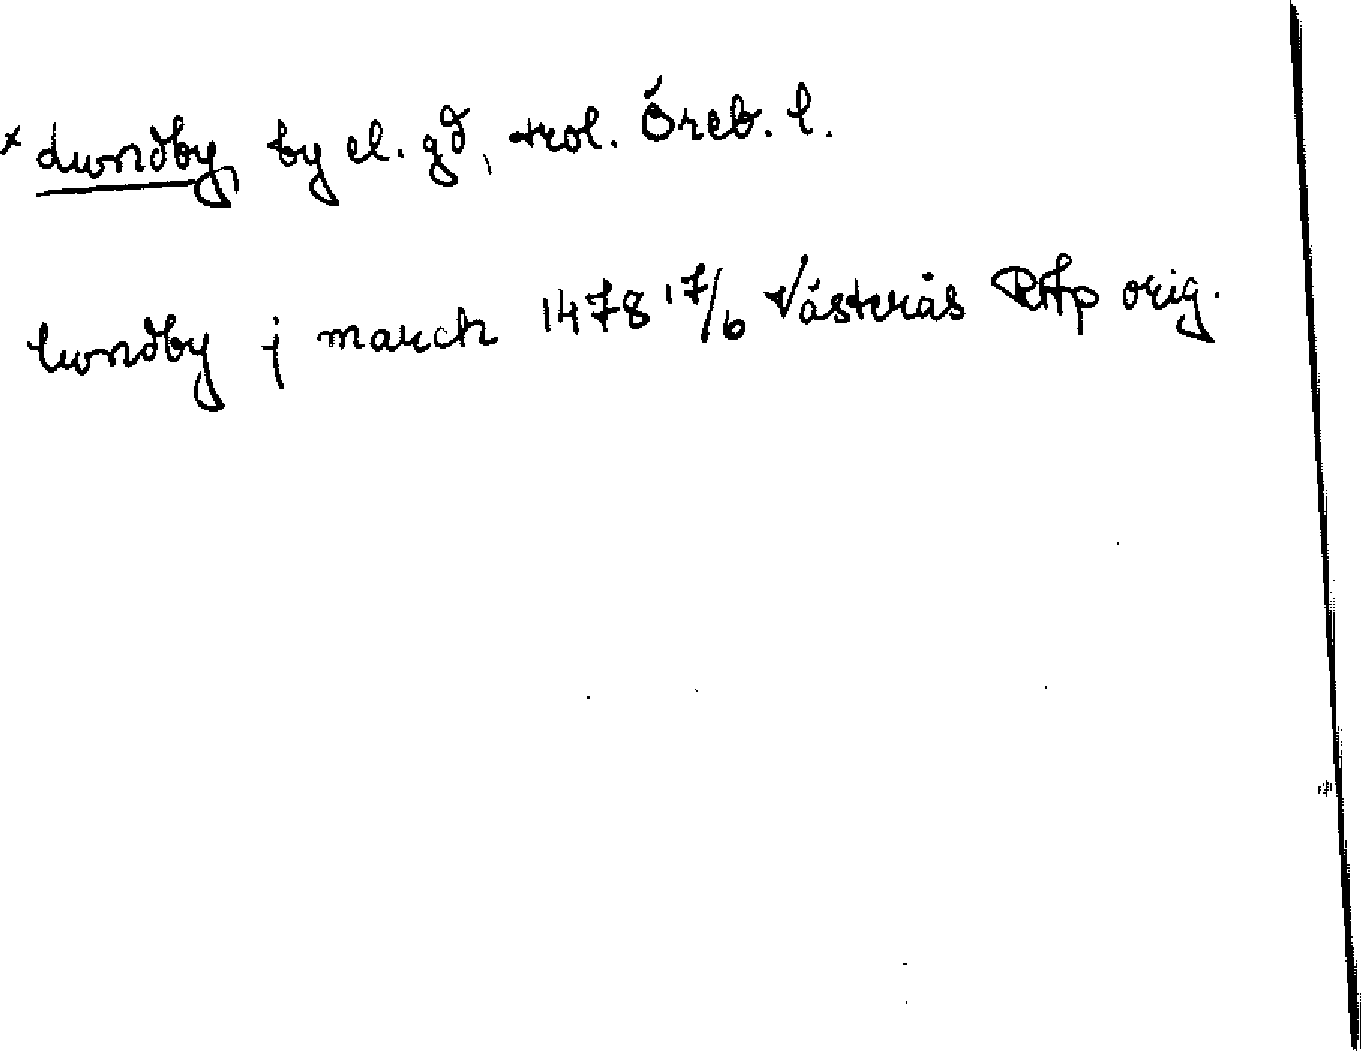 × Lundby, by el. gd, trol. Öreb. l.
lundby j march 1478 17/6 Västerås RAp orig.